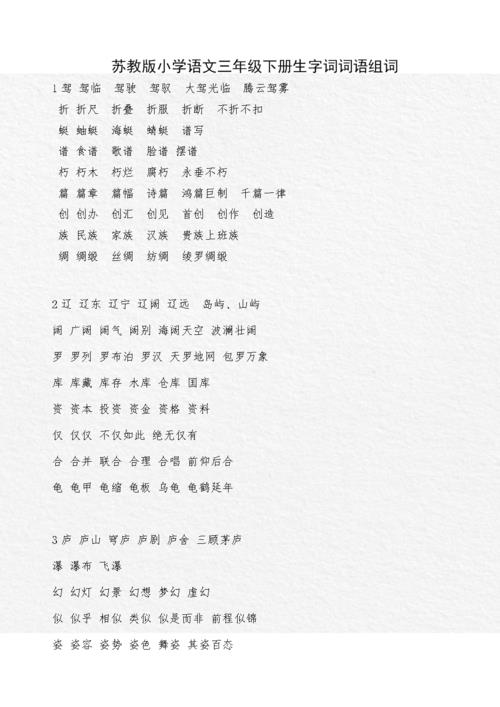 苏教版小学语文三年级下册生字词词语组词
1驾 驾临 驾驶 驾驭 大驾光临 腾云驾雾
折 折尺 折叠 折服 折断 不折不扣
蜓 蚰蜓 海蜓 蜻蜓 谱写
谱 食谱 歌谱 脸谱 摆谱
朽 朽木 朽烂 腐朽 永垂不朽
篇 篇章 篇幅 诗篇 鸿篇巨制 千篇一律
创 创办 创汇 创见 首创 创作 创造
族 民族 家族 汉族 贵族上班族
绸 绸缎 丝绸 纺绸 绫罗绸缎
2辽 辽东 辽宁 辽阔 辽远 岛屿、山屿
阔 广阔 阔气 阔别 海阔天空 波澜壮阔
罗 罗列 罗布泊 罗汉 天罗地网 包罗万象
库 库藏 库存 水库 仓库 国库
资 资本 投资 资金 资格 资料
仅 仅仅 不仅如此 绝无仅有
合 合并 联合 合理 合唱 前仰后合
龟 龟甲 龟缩 龟板 乌龟 龟鹤延年
3庐 庐山 穹庐 庐剧 庐舍 三顾茅庐
瀑 瀑布 飞瀑
幻 幻灯 幻景 幻想 梦幻 虚幻
似 似乎 相似 类似 似是而非 前程似锦
姿 姿容 姿势 姿色 舞姿 其姿百态